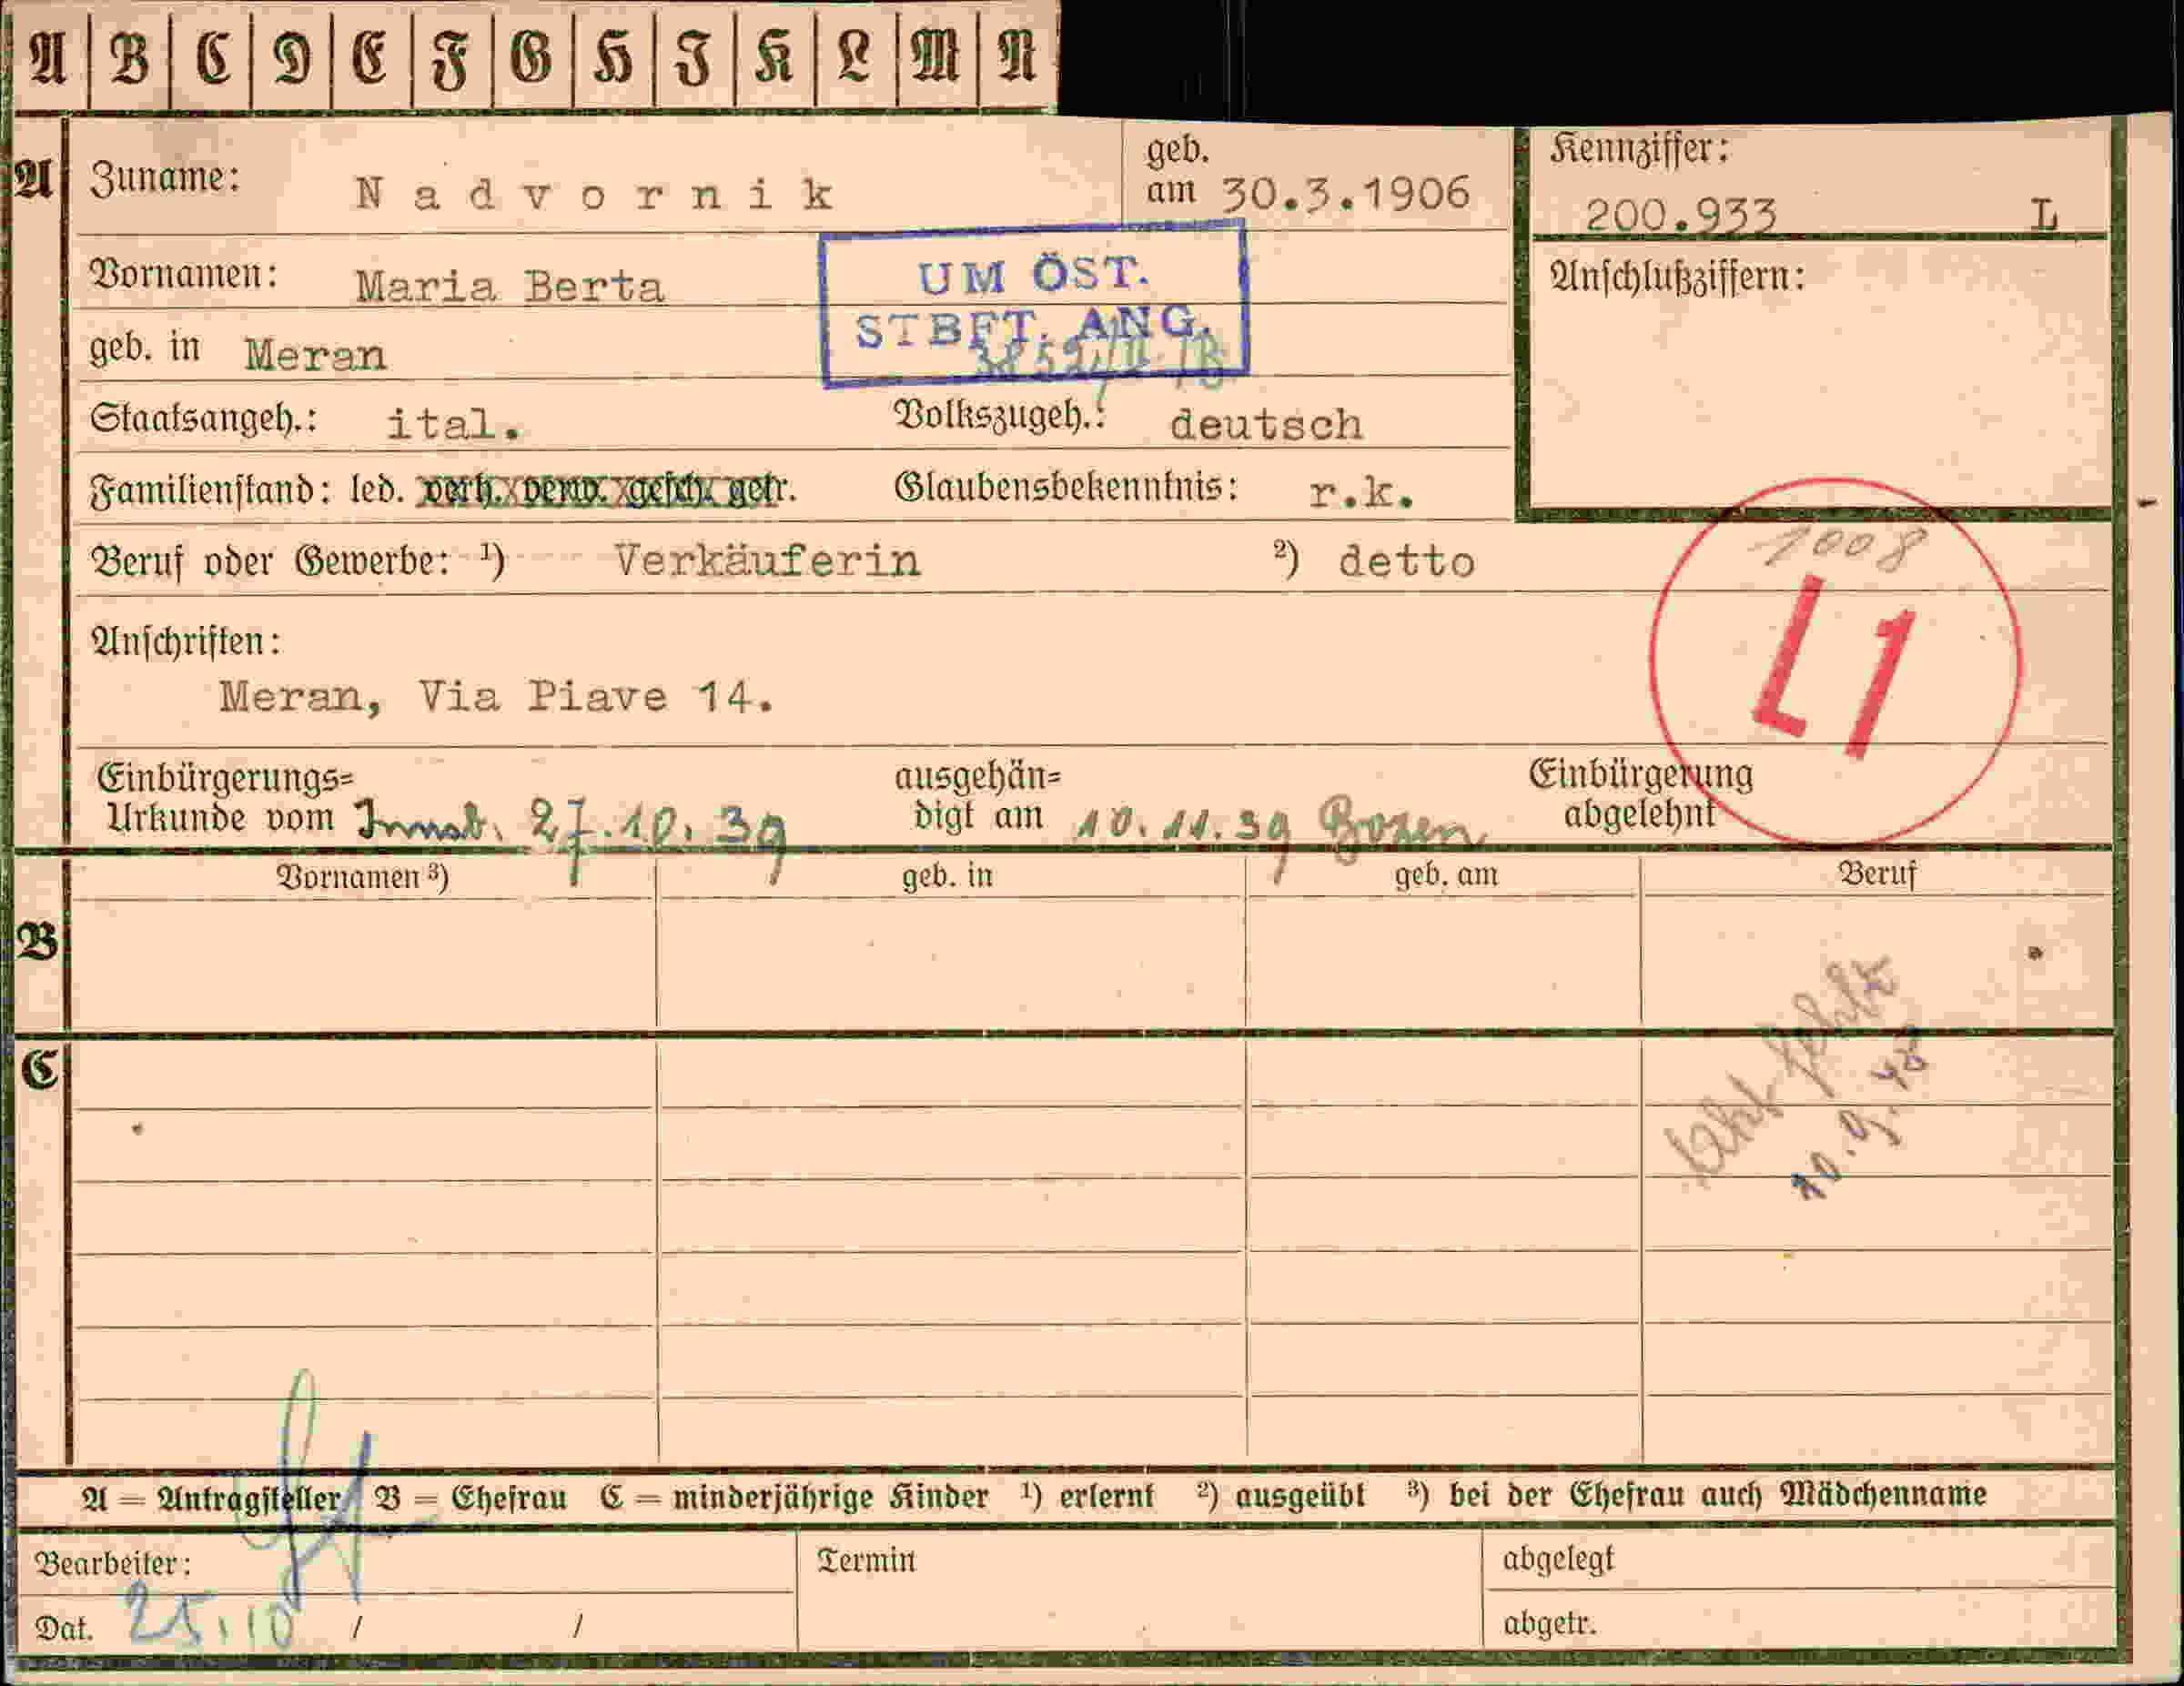 A B C D E F G H I K L M N
A
Zuname: Nadvornik
geb. am 30.3.1906
Kennziffer: 200.933 L
Vornamen: Maria Berta
UM ÖST.
STBFT. ANG.
Anschlußziffern:
geb. in Meran
Staatsangeh.: ital. Volkszugeh.: deutsch
Familienstand: led. verh. verw. gesch. getr. Glaubensbekenntnis: r.k.
Beruf oder Gewerbe: ¹) Verkäuferin ²) detto
1008
L1
Anschriften:
Meran, Via Piave 14.
Einbürgerungs=
Urkunde vom Innsb. 27.10.39
ausgehän=
digt am 10.11.39 Bozen
Einbürgerung
abgelehnt
Vornamen ³) geb. in geb. am Beruf
B
C
Akt fehlt
10.9.48
A = Antragsteller B = Ehefrau C = minderjährige Kinder ¹) erlernt ²) ausgeübt ³) bei der Ehefrau auch Mädchenname
Bearbeiter: Termin abgelegt
Dat. 25.10 / / abgetr.